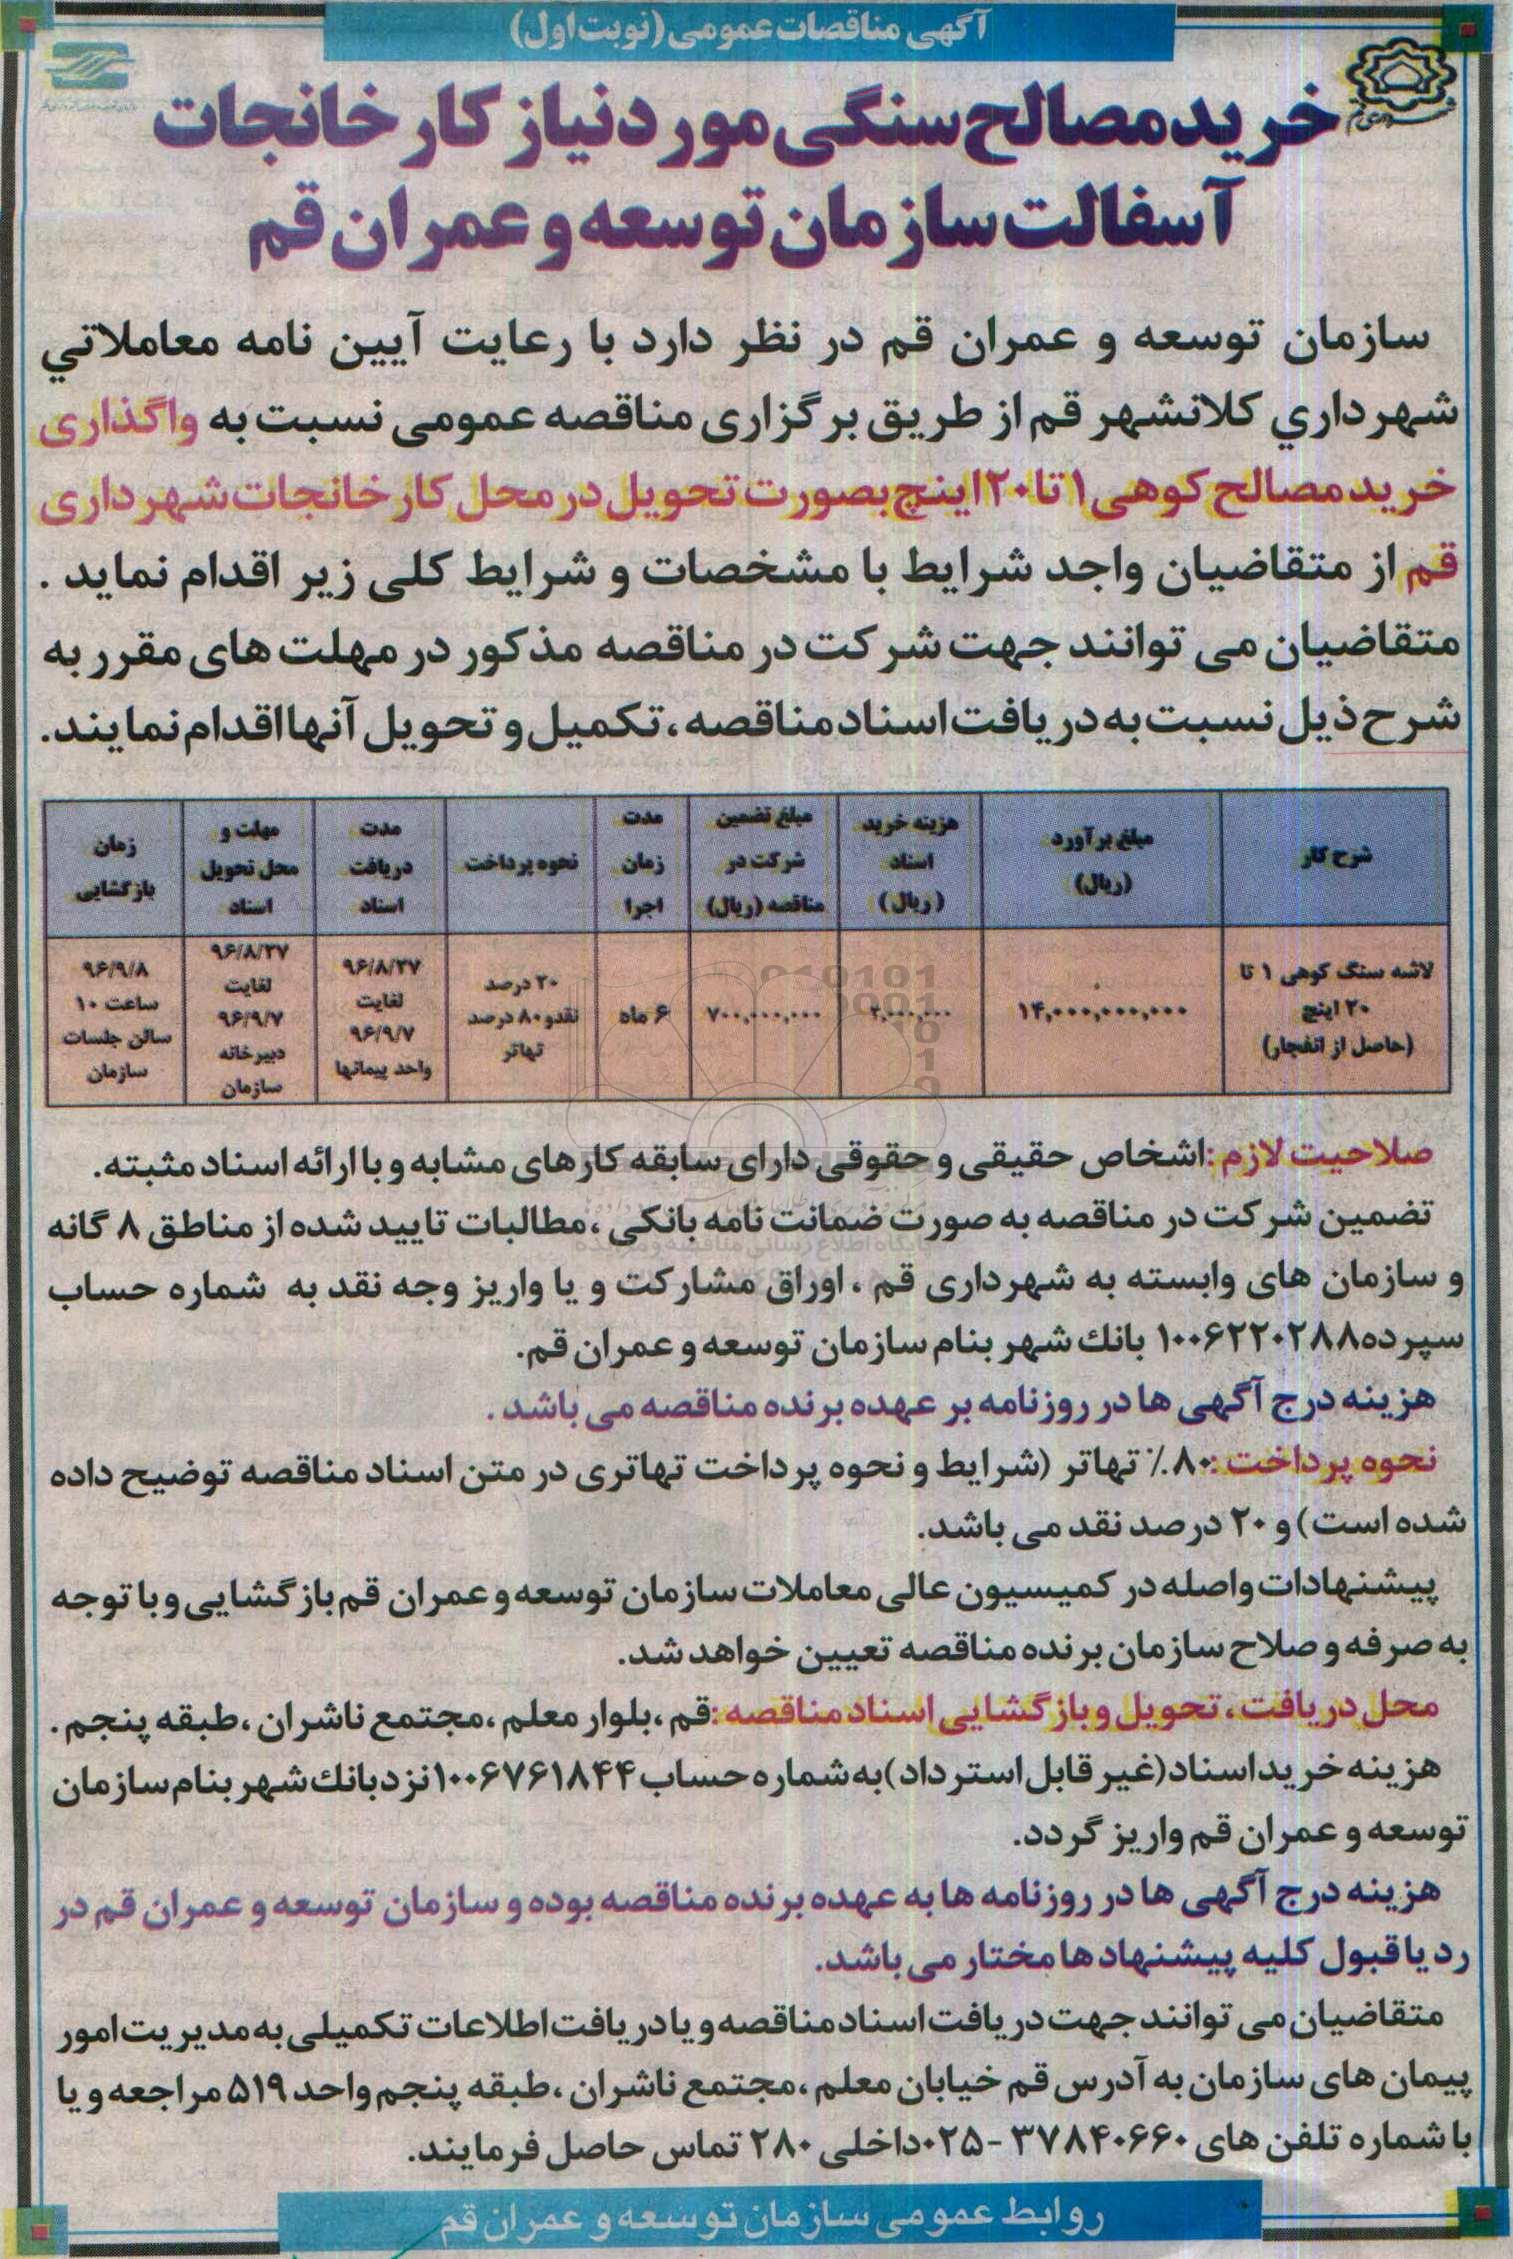 آگهی مناقصات عمومی (نوبت اول)
خرید مصالح سنگی مورد نیاز کارخانجات
آسفالت سازمان توسعه و عمران قم
سازمان توسعه و عمران قم در نظر دارد با رعایت آیین نامه معاملاتي
شهرداري کلانشهر قم از طریق برگزاری مناقصه عمومی نسبت به واگذاری
خرید مصالح کوهی ۱ تا ۲۰ اینچ بصورت تحویل در محل کارخانجات شهرداری
قم از متقاضیان واجد شرایط با مشخصات و شرایط کلی زیر اقدام نماید .
متقاضیان می توانند جهت شرکت در مناقصه مذکور در مهلت های مقرر به
شرح ذیل نسبت به دریافت اسناد مناقصه ، تکمیل و تحویل آنها اقدام نمایند.
شرح کار
مبلغ برآورد
(ریال)
هزینه خرید
اسناد
(ریال)
مبلغ تضمین
شرکت در
مناقصه (ریال)
مدت
زمان
اجرا
نحوه پرداخت
مدت
دریافت
اسناد
مهلت و
محل تحویل
اسناد
زمان
بازگشایی
لاشه سنگ کوهی ۱ تا
۲۰ اینچ
(حاصل از انفجار)
۱۴,۰۰۰,۰۰۰,۰۰۰
۲,۰۰۰,۰۰۰
۷۰۰,۰۰۰,۰۰۰
۶ ماه
۲۰ درصد
نقد و ۸۰ درصد
تهاتر
۹۶/۸/۲۷
لغایت
۹۶/۹/۷
واحد پیمانها
۹۶/۸/۲۷
لغایت
۹۶/۹/۷
دبیرخانه
سازمان
۹۶/۹/۸
ساعت ۱۰
سالن جلسات
سازمان
صلاحیت لازم :اشخاص حقیقی و حقوقی دارای سابقه کارهای مشابه و با ارائه اسناد مثبته.
تضمین شرکت در مناقصه به صورت ضمانت نامه بانکی ،مطالبات تایید شده از مناطق ۸ گانه
و سازمان های وابسته به شهرداری قم ، اوراق مشارکت و یا واریز وجه نقد به شماره حساب
سپرده۱۰۰۶۲۲۰۲۸۸ بانك شهر بنام سازمان توسعه و عمران قم.
هزینه درج آگهی ها در روزنامه بر عهده برنده مناقصه می باشد .
نحوه پرداخت :۸۰٪ تهاتر (شرایط و نحوه پرداخت تهاتری در متن اسناد مناقصه توضیح داده
شده است) و ۲۰ درصد نقد می باشد.
پیشنهادات واصله در کمیسیون عالی معاملات سازمان توسعه و عمران قم بازگشایی و با توجه
به صرفه و صلاح سازمان برنده مناقصه تعیین خواهد شد.
محل دریافت ، تحویل و بازگشایی اسناد مناقصه :قم ،بلوار معلم ،مجتمع ناشران ،طبقه پنجم .
هزینه خرید اسناد (غیر قابل استرداد) به شماره حساب ۱۰۰۶۷۶۱۸۴۴ نزد بانك شهر بنام سازمان
توسعه و عمران قم واریز گردد.
هزینه درج آگهی ها در روزنامه ها به عهده برنده مناقصه بوده و سازمان توسعه و عمران قم در
رد یا قبول کلیه پیشنهاد ها مختار می باشد.
متقاضیان می توانند جهت دریافت اسناد مناقصه و یا دریافت اطلاعات تکمیلی به مدیریت امور
پیمان های سازمان به آدرس قم خیابان معلم ،مجتمع ناشران ،طبقه پنجم واحد ۵۱۹ مراجعه و یا
با شماره تلفن های ۳۷۸۴۰۶۶۰ -۰۲۵ داخلی ۲۸۰ تماس حاصل فرمایند.
روابط عمومی سازمان توسعه و عمران قم